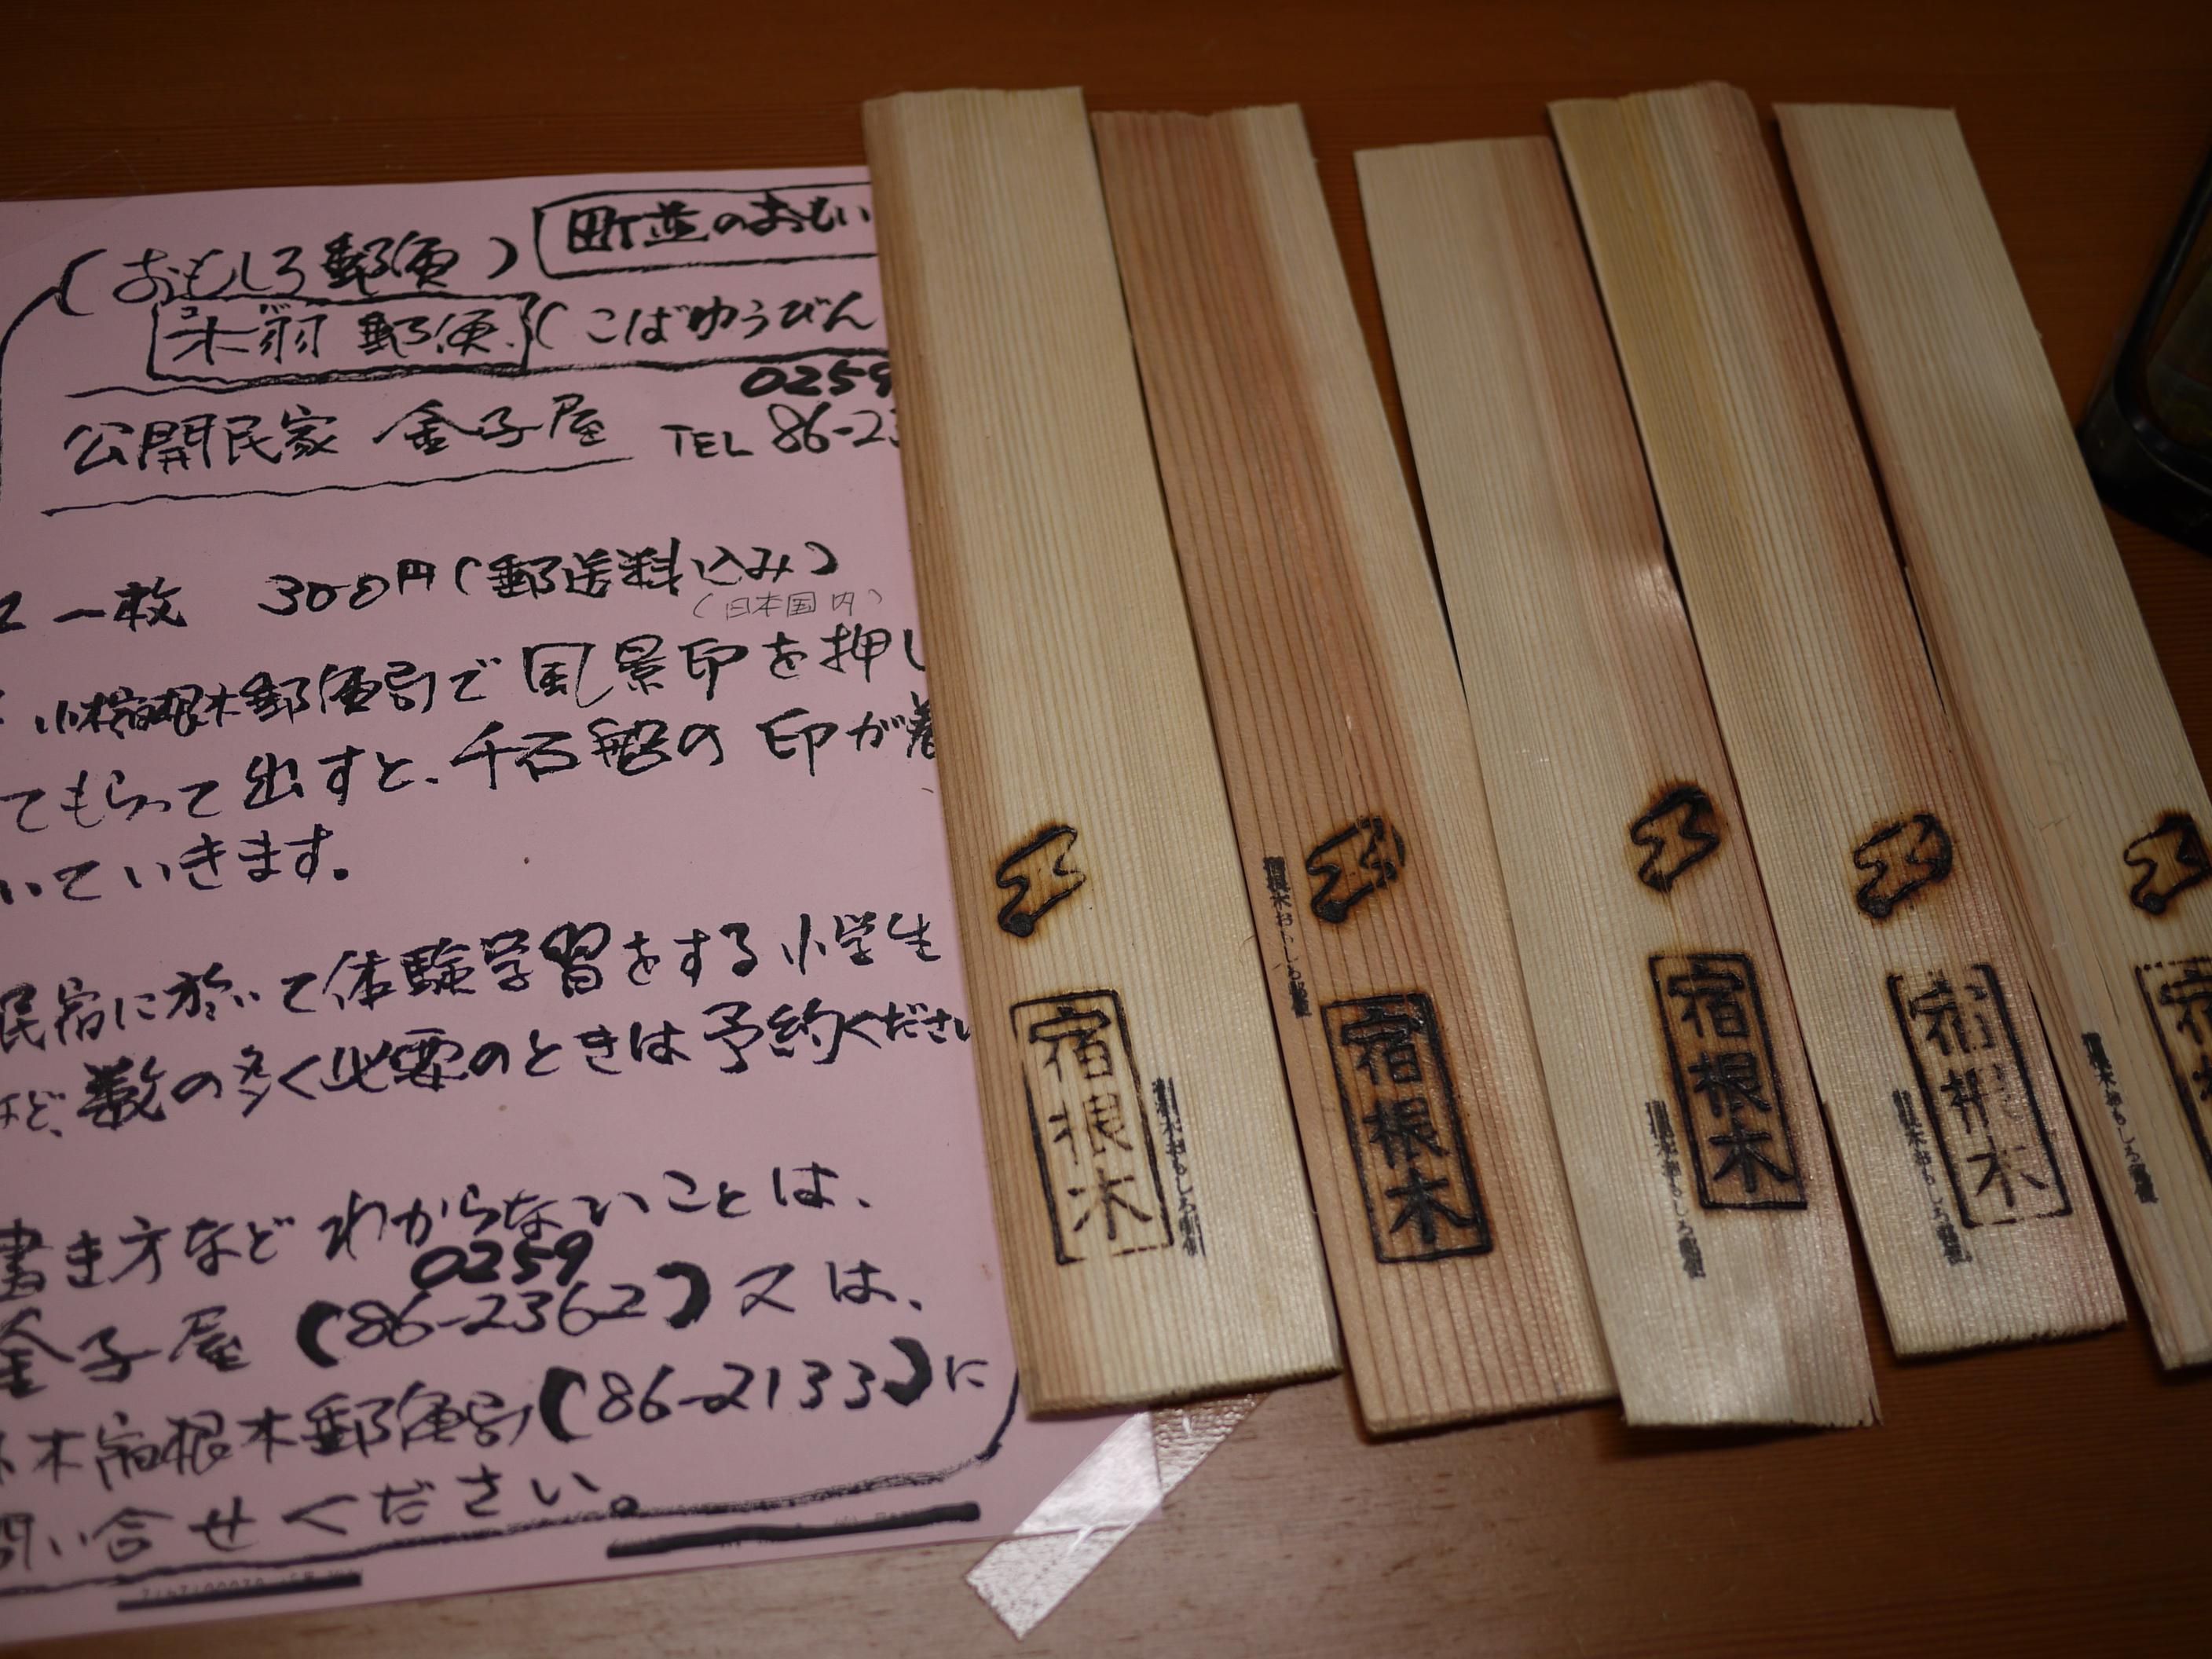 (おもしろ郵便)
町並のおもい
コバ
木羽 郵便
(こばゆうびん
公開民家 金子屋 TEL 0259
86-23
一枚 300円(郵送料込み)
(日本国内)
小木宿根木郵便局で風景印を押し
てもらって出すと、千石船の印が着
いていきます。
民宿に於いて体験学習をする小学生
など、数の多く必要のときは予約ください
書き方など わからないことは、
金子屋 0259(86-2362)又は、
小木宿根木郵便局(86-2133)に
問い合せください。
宿根木
宿根木おもしろ郵便
宿根木
宿根木おもしろ郵便
宿根木
宿根木おもしろ郵便
宿根木
宿根木おもしろ郵便
宿根木おもしろ郵便
宿